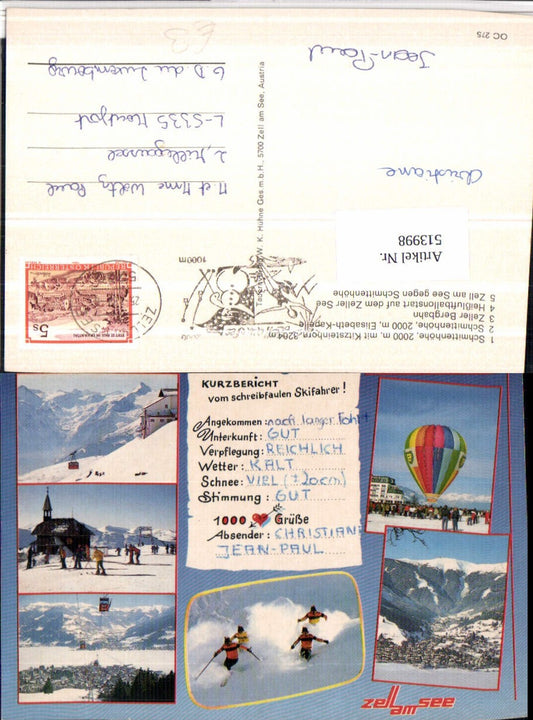 OC 275
E3
Jean-Paul
Christiane
M et Mme Waltz Paul
2, Millegässel
L-5335 Moutfort
G D du Luxembourg
W. K. Huhne Ges.m.b.H., 5700 Zell am See, Austria
REPUBLIK ÖSTERREICH
5s
ZELL
1000m
Artikel Nr.
513998
1 Schmittenhöhe, 2000 m, mit Kitzsteinhorn, 3204 m
2 Schmittenhöhe, 2000 m, Elisabeth-Kapelle
3 Zeller Bergbahn
4 Heißluftballonstart auf dem Zeller See
5 Zell am See gegen Schmittenhöhe
KURZBERICHT
vom schreibfaulen Skifahrer!
Angekommen: nach langer Fahrt
Unterkunft: GUT
Verpflegung: REICHLICH
Wetter: KALT
Schnee: VIEL (±20cm)
Stimmung: GUT
1000 Grüße
Absender: CHRISTIANE
JEAN-PAUL
zell am see